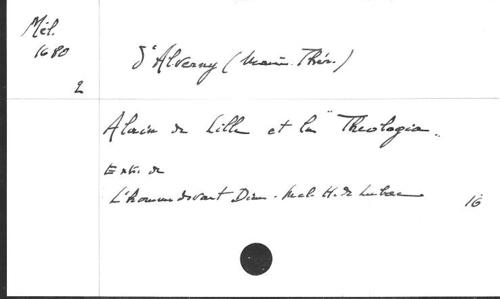 Mél.
1680
2
d'Alverny (Marie-Thér.)
Alain de Lille et la "Theologia".
Extr. de
L'homme devant Dieu. Mél. H. de Lubac
16